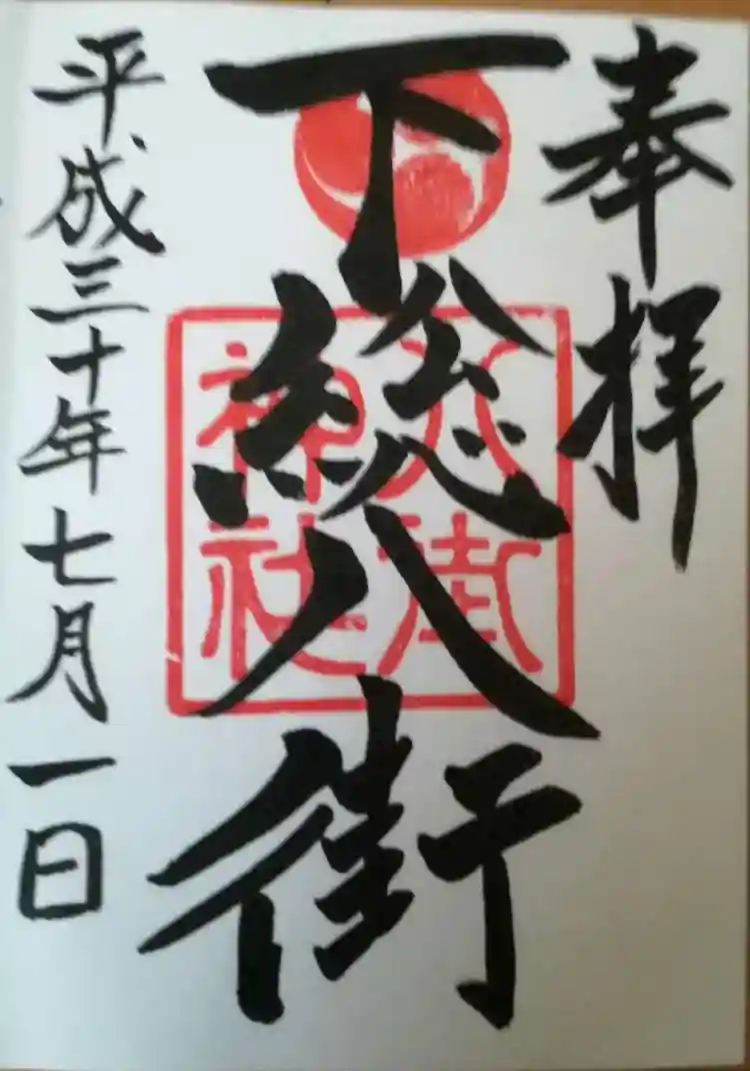 奉拝
下総八街
八街
神社
平成三十年七月一日